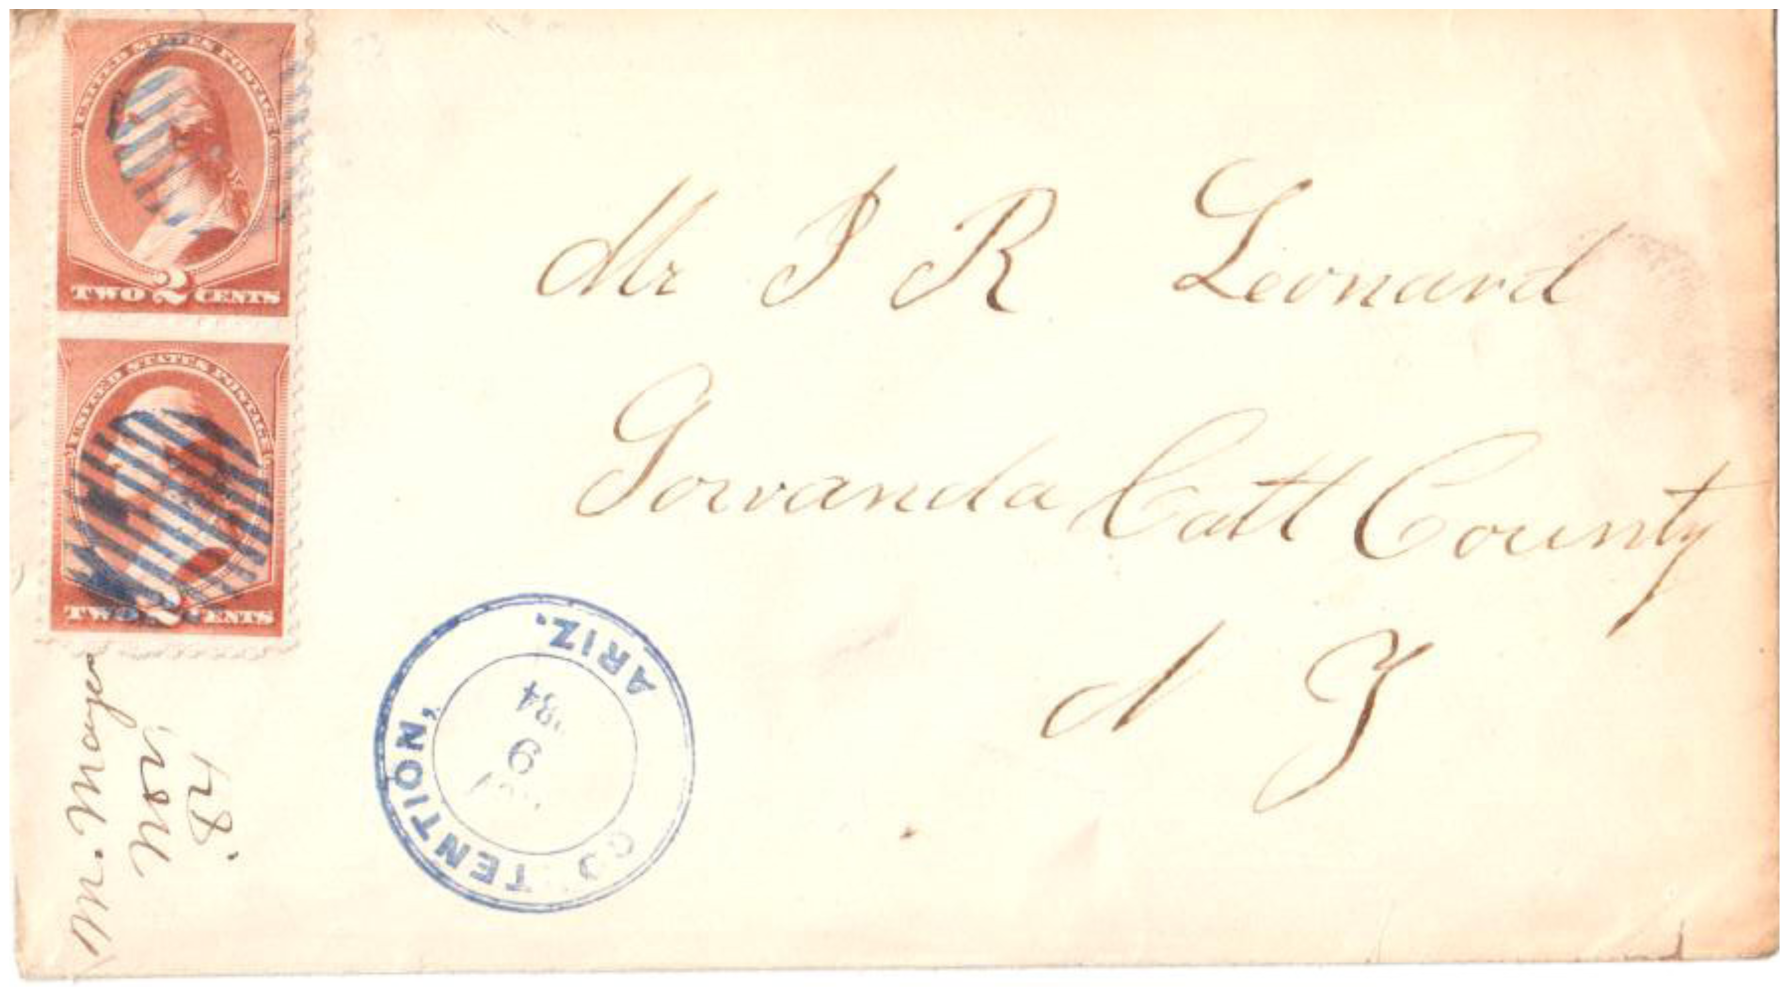 UNITED STATES POSTAGE
TWO 2 CENTS
UNITED STATES POSTAGE
TWO 2 CENTS
Mr J R Leonard
Gowanda Catt County
N Y
CONTENTION,
ARIZ.
9
'84
M. Mayer
Nov
'84